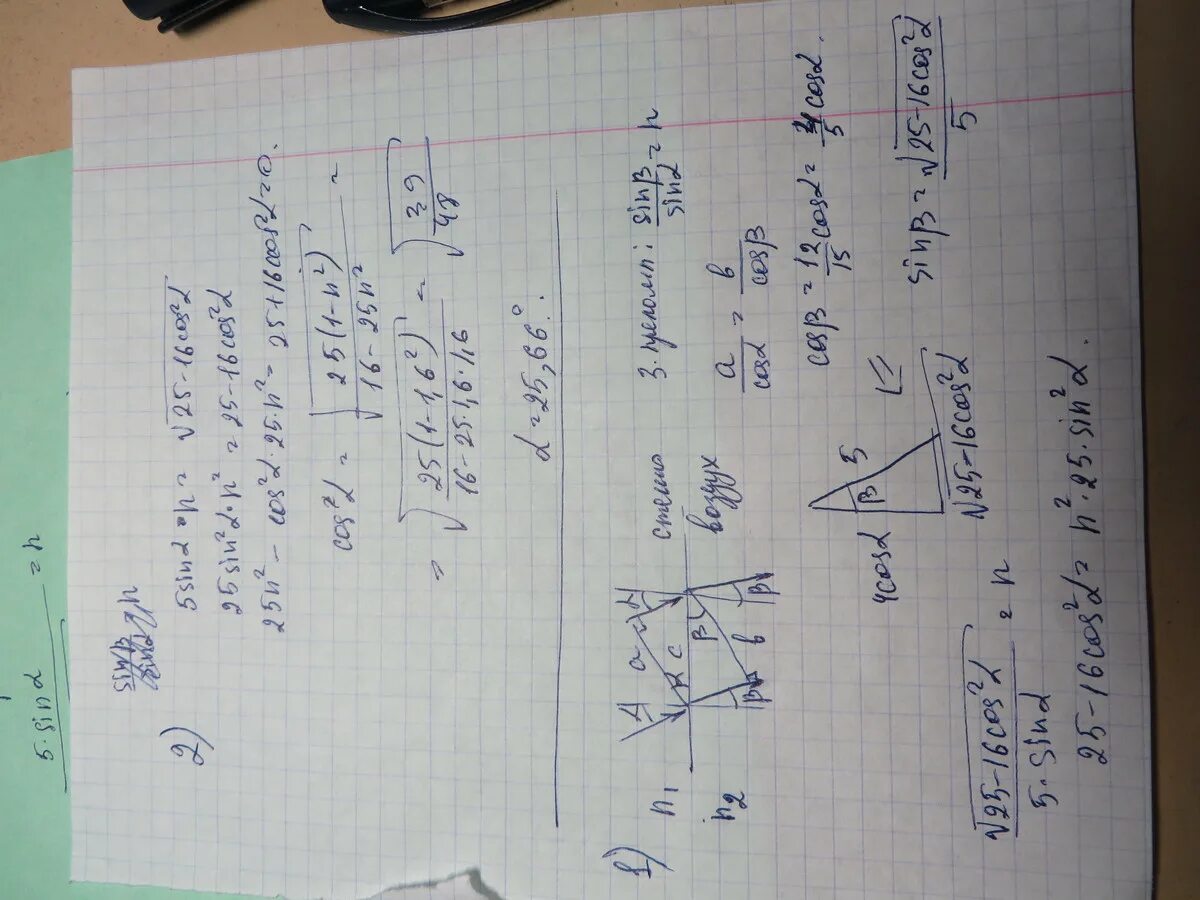 5·sinα = n
2)
5sinα·n = √25-16cos²α
25sin²α·n² = 25-16cos²α
25n² - cos²α·25·n² - 25+16cos²α=0.
cos²α = √(25(1-n²)/(16-25n²)) =
= √(25(1-1,6²)/(16-25·1,6·1,6)) = √(39/48)
α=25,66°.
1)
n₁ α a α c α стекло З. преломл: sinβ/sinα = n
n₂ β b β β воздух a/cosα = b/cosβ
4cosα β 5 cosβ = 12/15 cosα = 4/5 cosα.
√25-16cos²α sinβ = √25-16cos²α/5
√25-16cos²α/5·sinα = n
25-16cos²α = n²·25·sin²α.